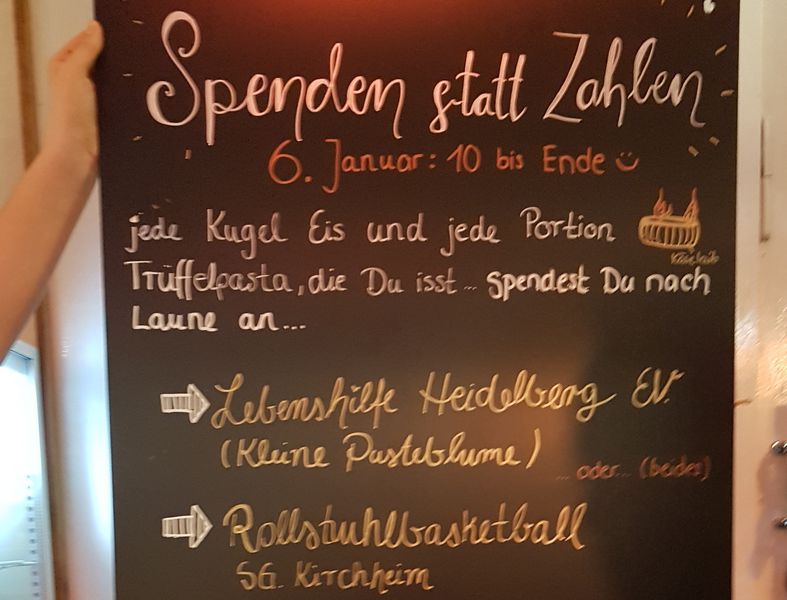 Spenden statt Zahlen
6. Januar: 10 bis Ende
jede Kugel Eis und jede Portion
Trüffelpasta, die Du isst... spendest Du nach
Laune an...
Lebenshilfe Heidelberg EV.
(Kleine Pusteblume)
... oder... (beides)
Rollstuhlbasketball
SG. Kirchheim